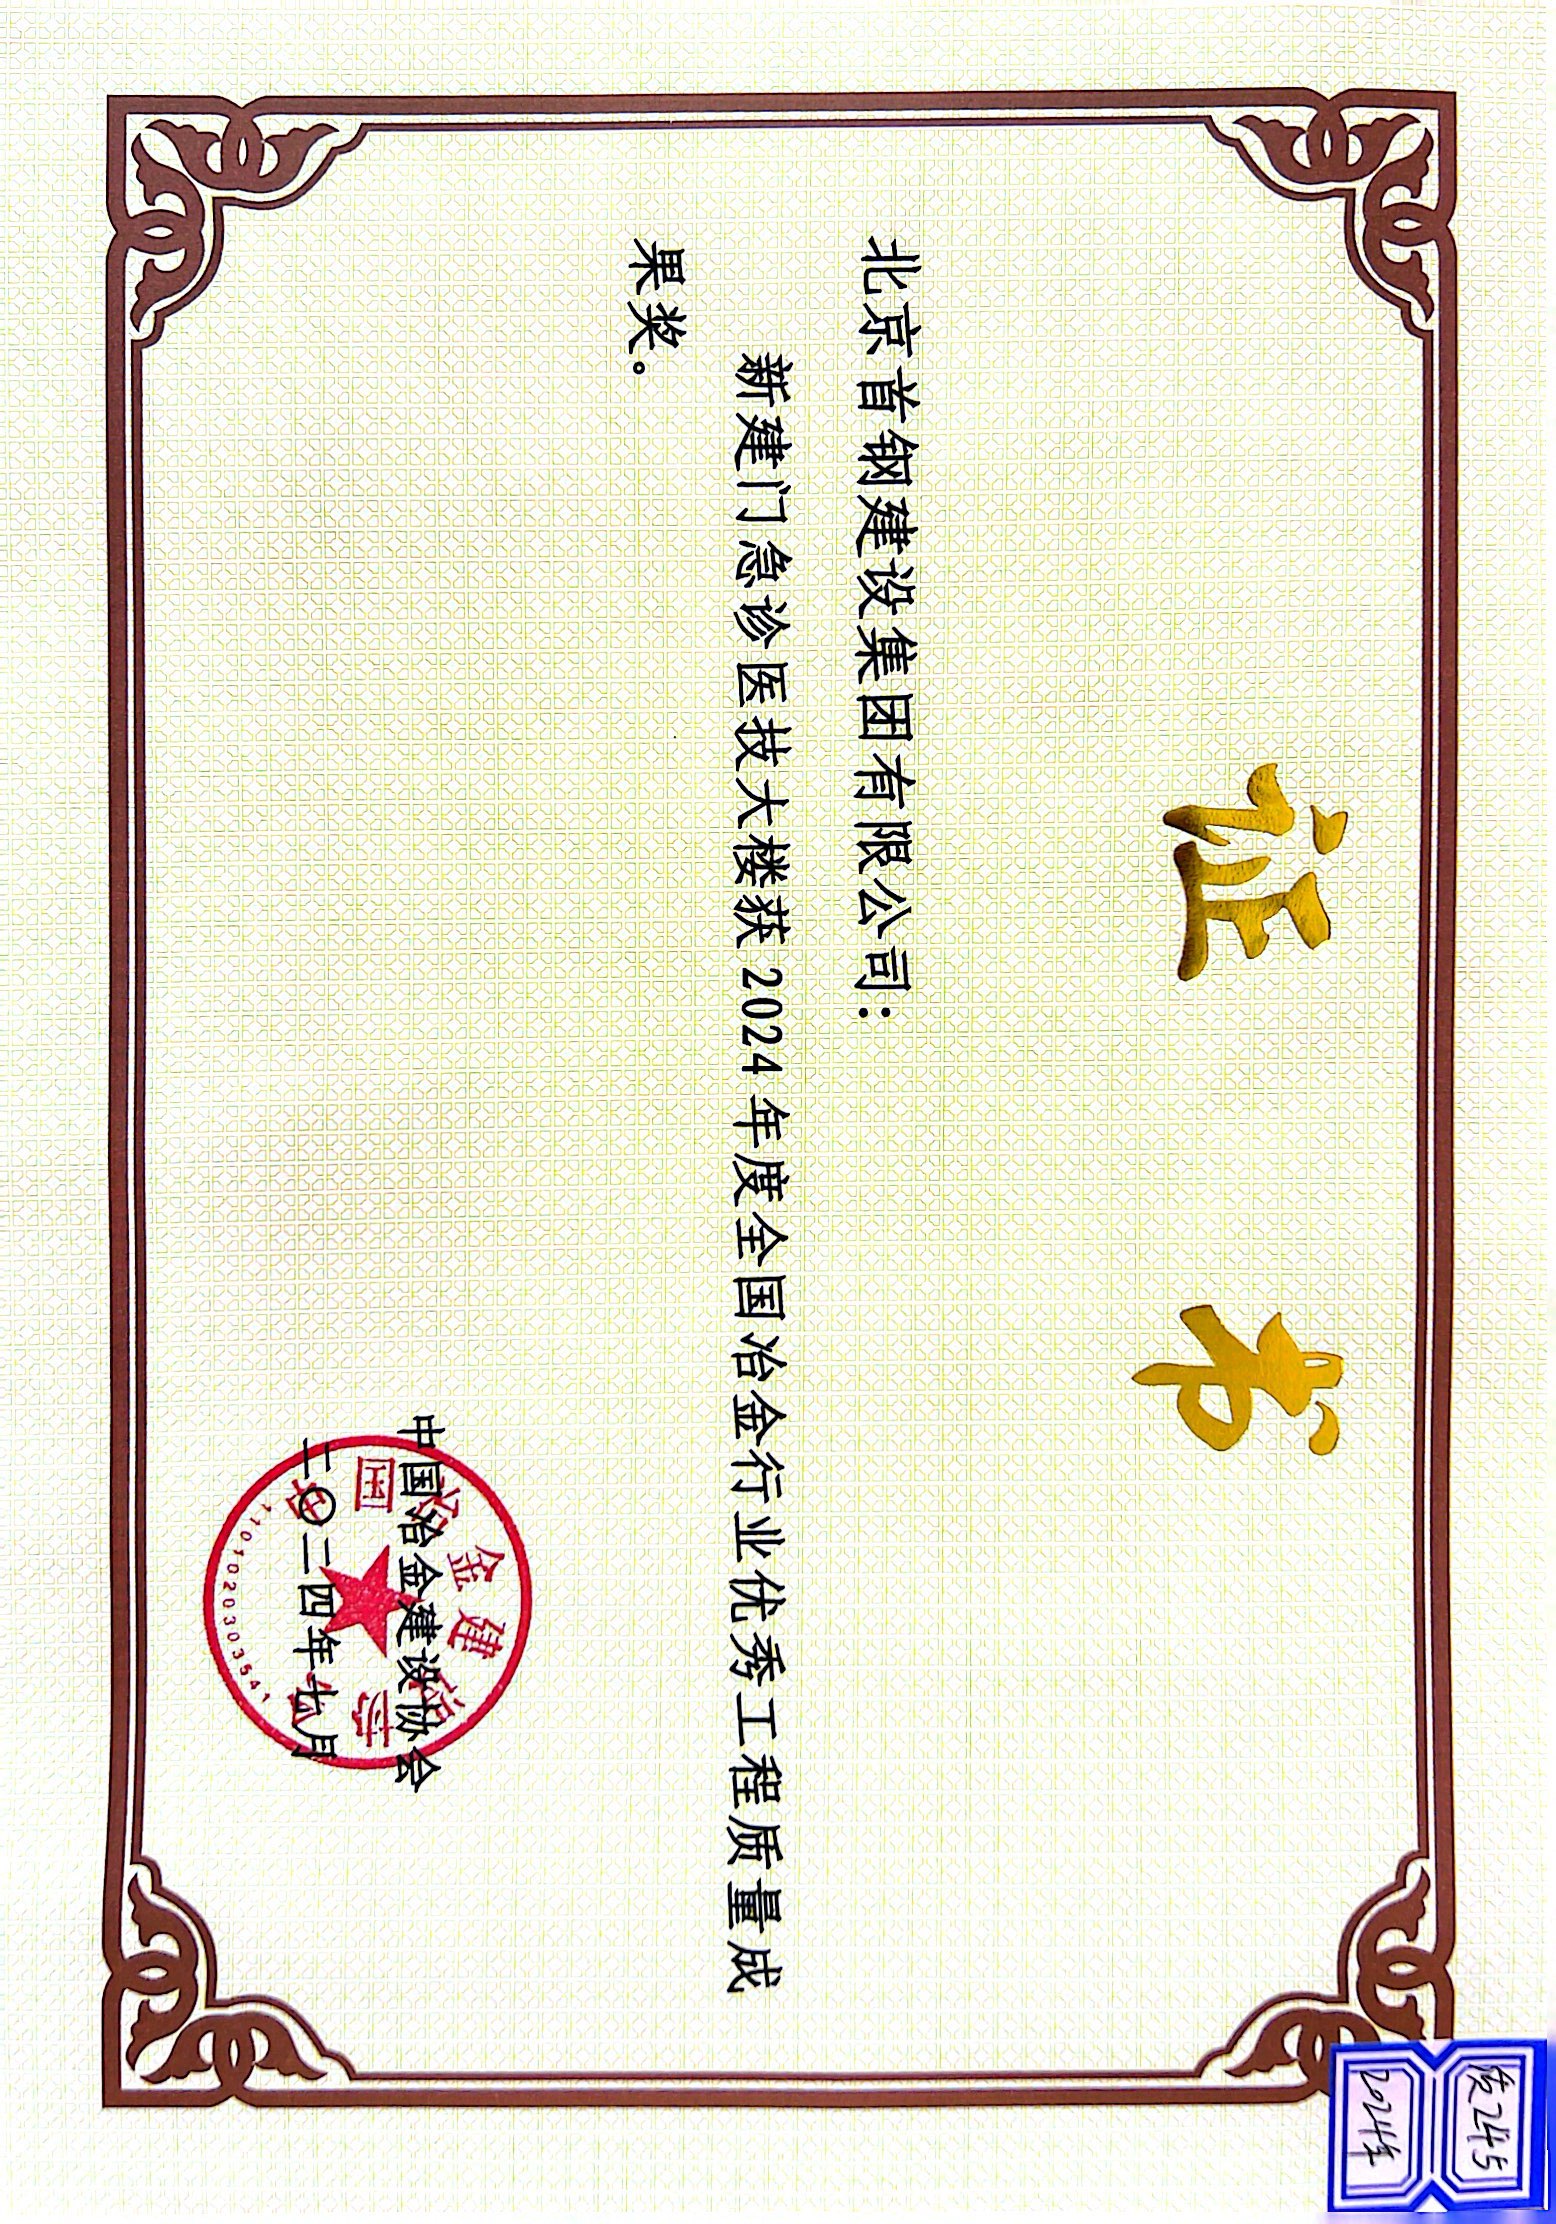 证 书
北京首钢建设集团有限公司：
新建门急诊医技大楼获2024年度全国冶金行业优秀工程质量成
果奖。
中国冶金建设协会
二〇二四年七月
中国冶金建设协会
1101020303541
2024年